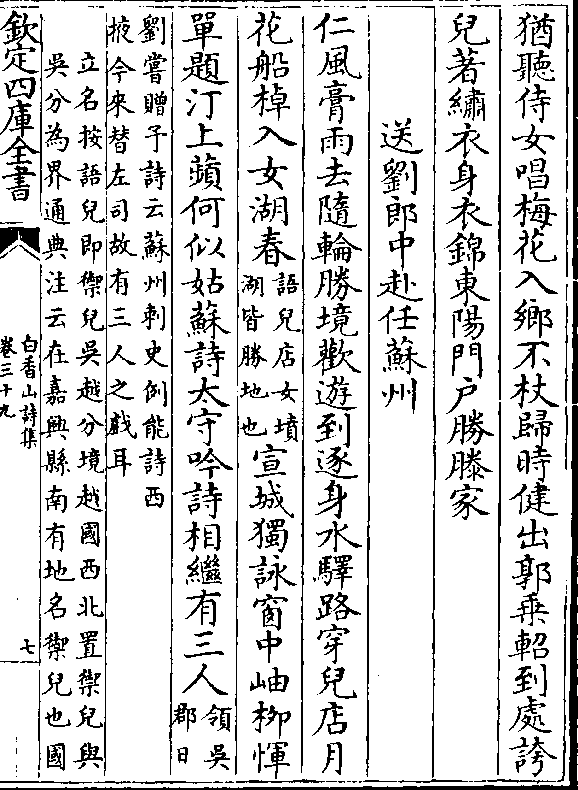 猶聽侍女唱梅花入鄉不杖歸時健出郭乗軺到處誇
兒著繡衣身衣錦東陽門戶勝滕家
送劉郎中赴任蘇州
仁風膏雨去隨輪勝境歡遊到逐身水驛路穿兒店月
花船棹入女湖春
語兒店女墳
湖皆勝地也
宣城獨詠窗中岫柳惲
單題汀上蘋何似姑蘇詩太守吟詩相繼有三人
領吳
郡日
劉嘗贈予詩云蘇州刺史例能詩西
掖今來替左司故有三人之戲耳
立名按語兒即禦兒吳越分境越國西北置禦兒與
吳分為界通典注云在嘉興縣南有地名禦兒也國
欽定四庫全書
白香山詩集
卷三十九
七